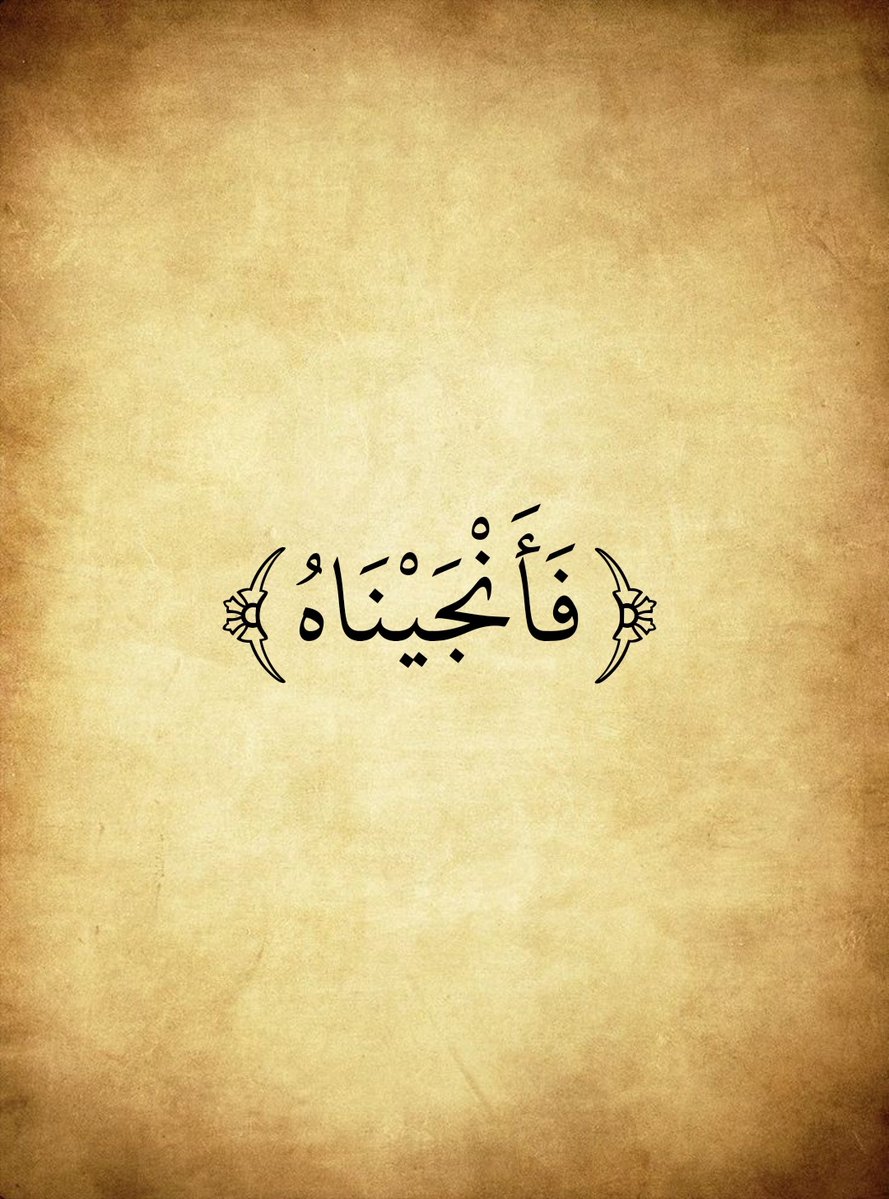 ﴿فَأَنْجَيْنَاهُ﴾